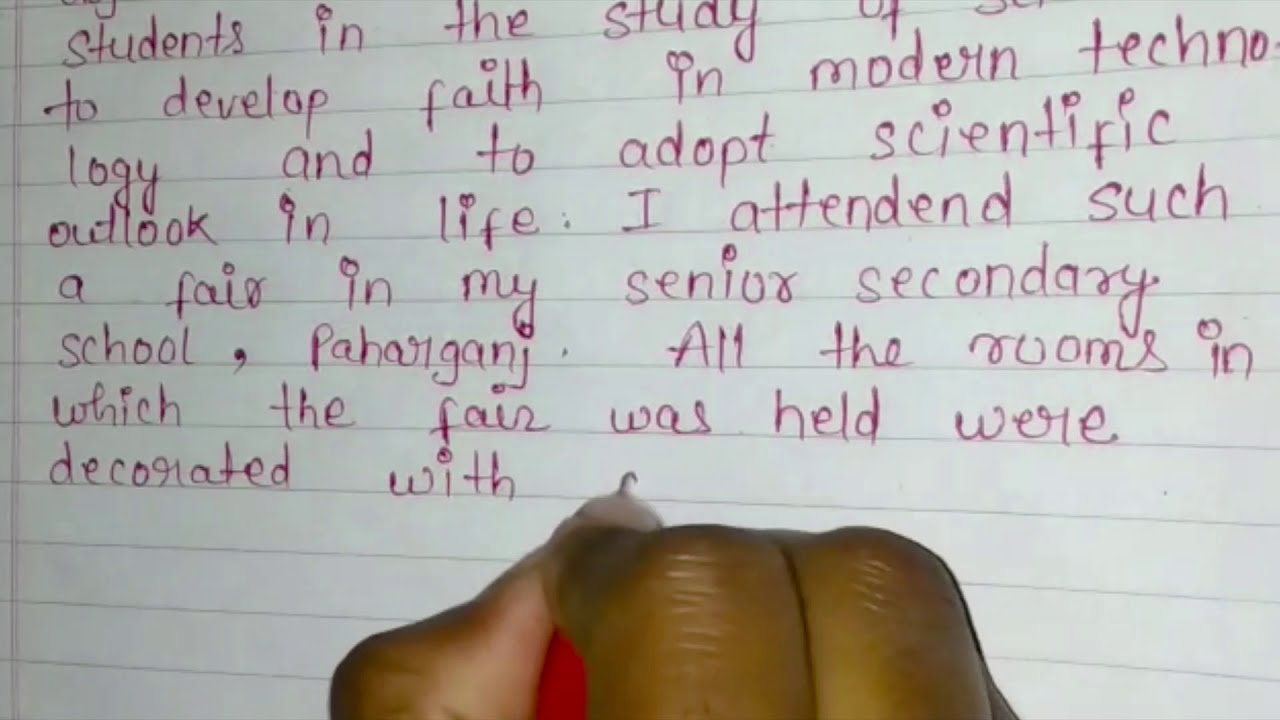 students in the study of
to develop faith in modern techno-
logy and to adopt scientific
outlook in life. I attendend such
a fair in my senior secondary
school, Paharganj. All the rooms in
which the fair was held were
decorated with